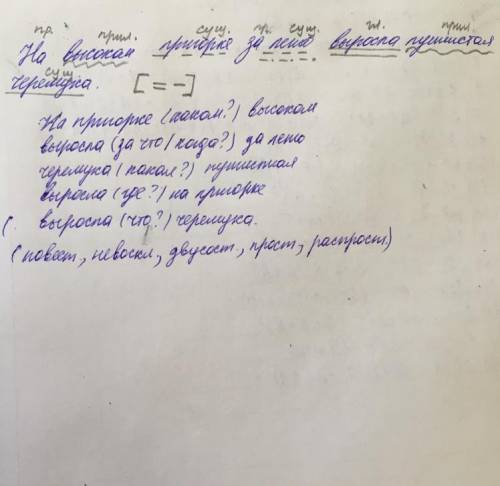 пр. прил. сущ. пр. сущ. гл. прил.
На высоком пригорке за лето выросла пушистая
сущ.
черемуха. [= -]
На пригорке (каком?) высоком
выросла (за что/когда?) за лето
черемуха (какая?) пушистая
выросла (где?) на пригорке
( выросла (что?) черемуха.
(повест., невоскл., двусост., прост., распрост.)